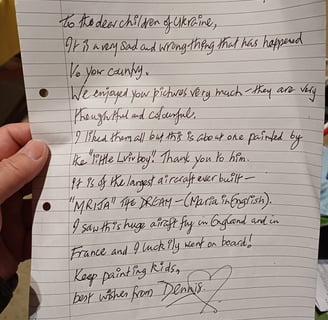 To the dear children of Ukraine,
It is a very sad and wrong thing that has happened
to your country.
We enjoyed your pictures very much - they are very
thoughtful and colourful.
I liked them all but this is about one painted by
the "little Lviv boy". Thank you to him.
It is of the largest aircraft ever built -
"MRIJA" THE DREAM - (Maria in English).
I saw this huge aircraft fly in England and in
France and I luckily went on board!
Keep painting kids,
best wishes from Dennis